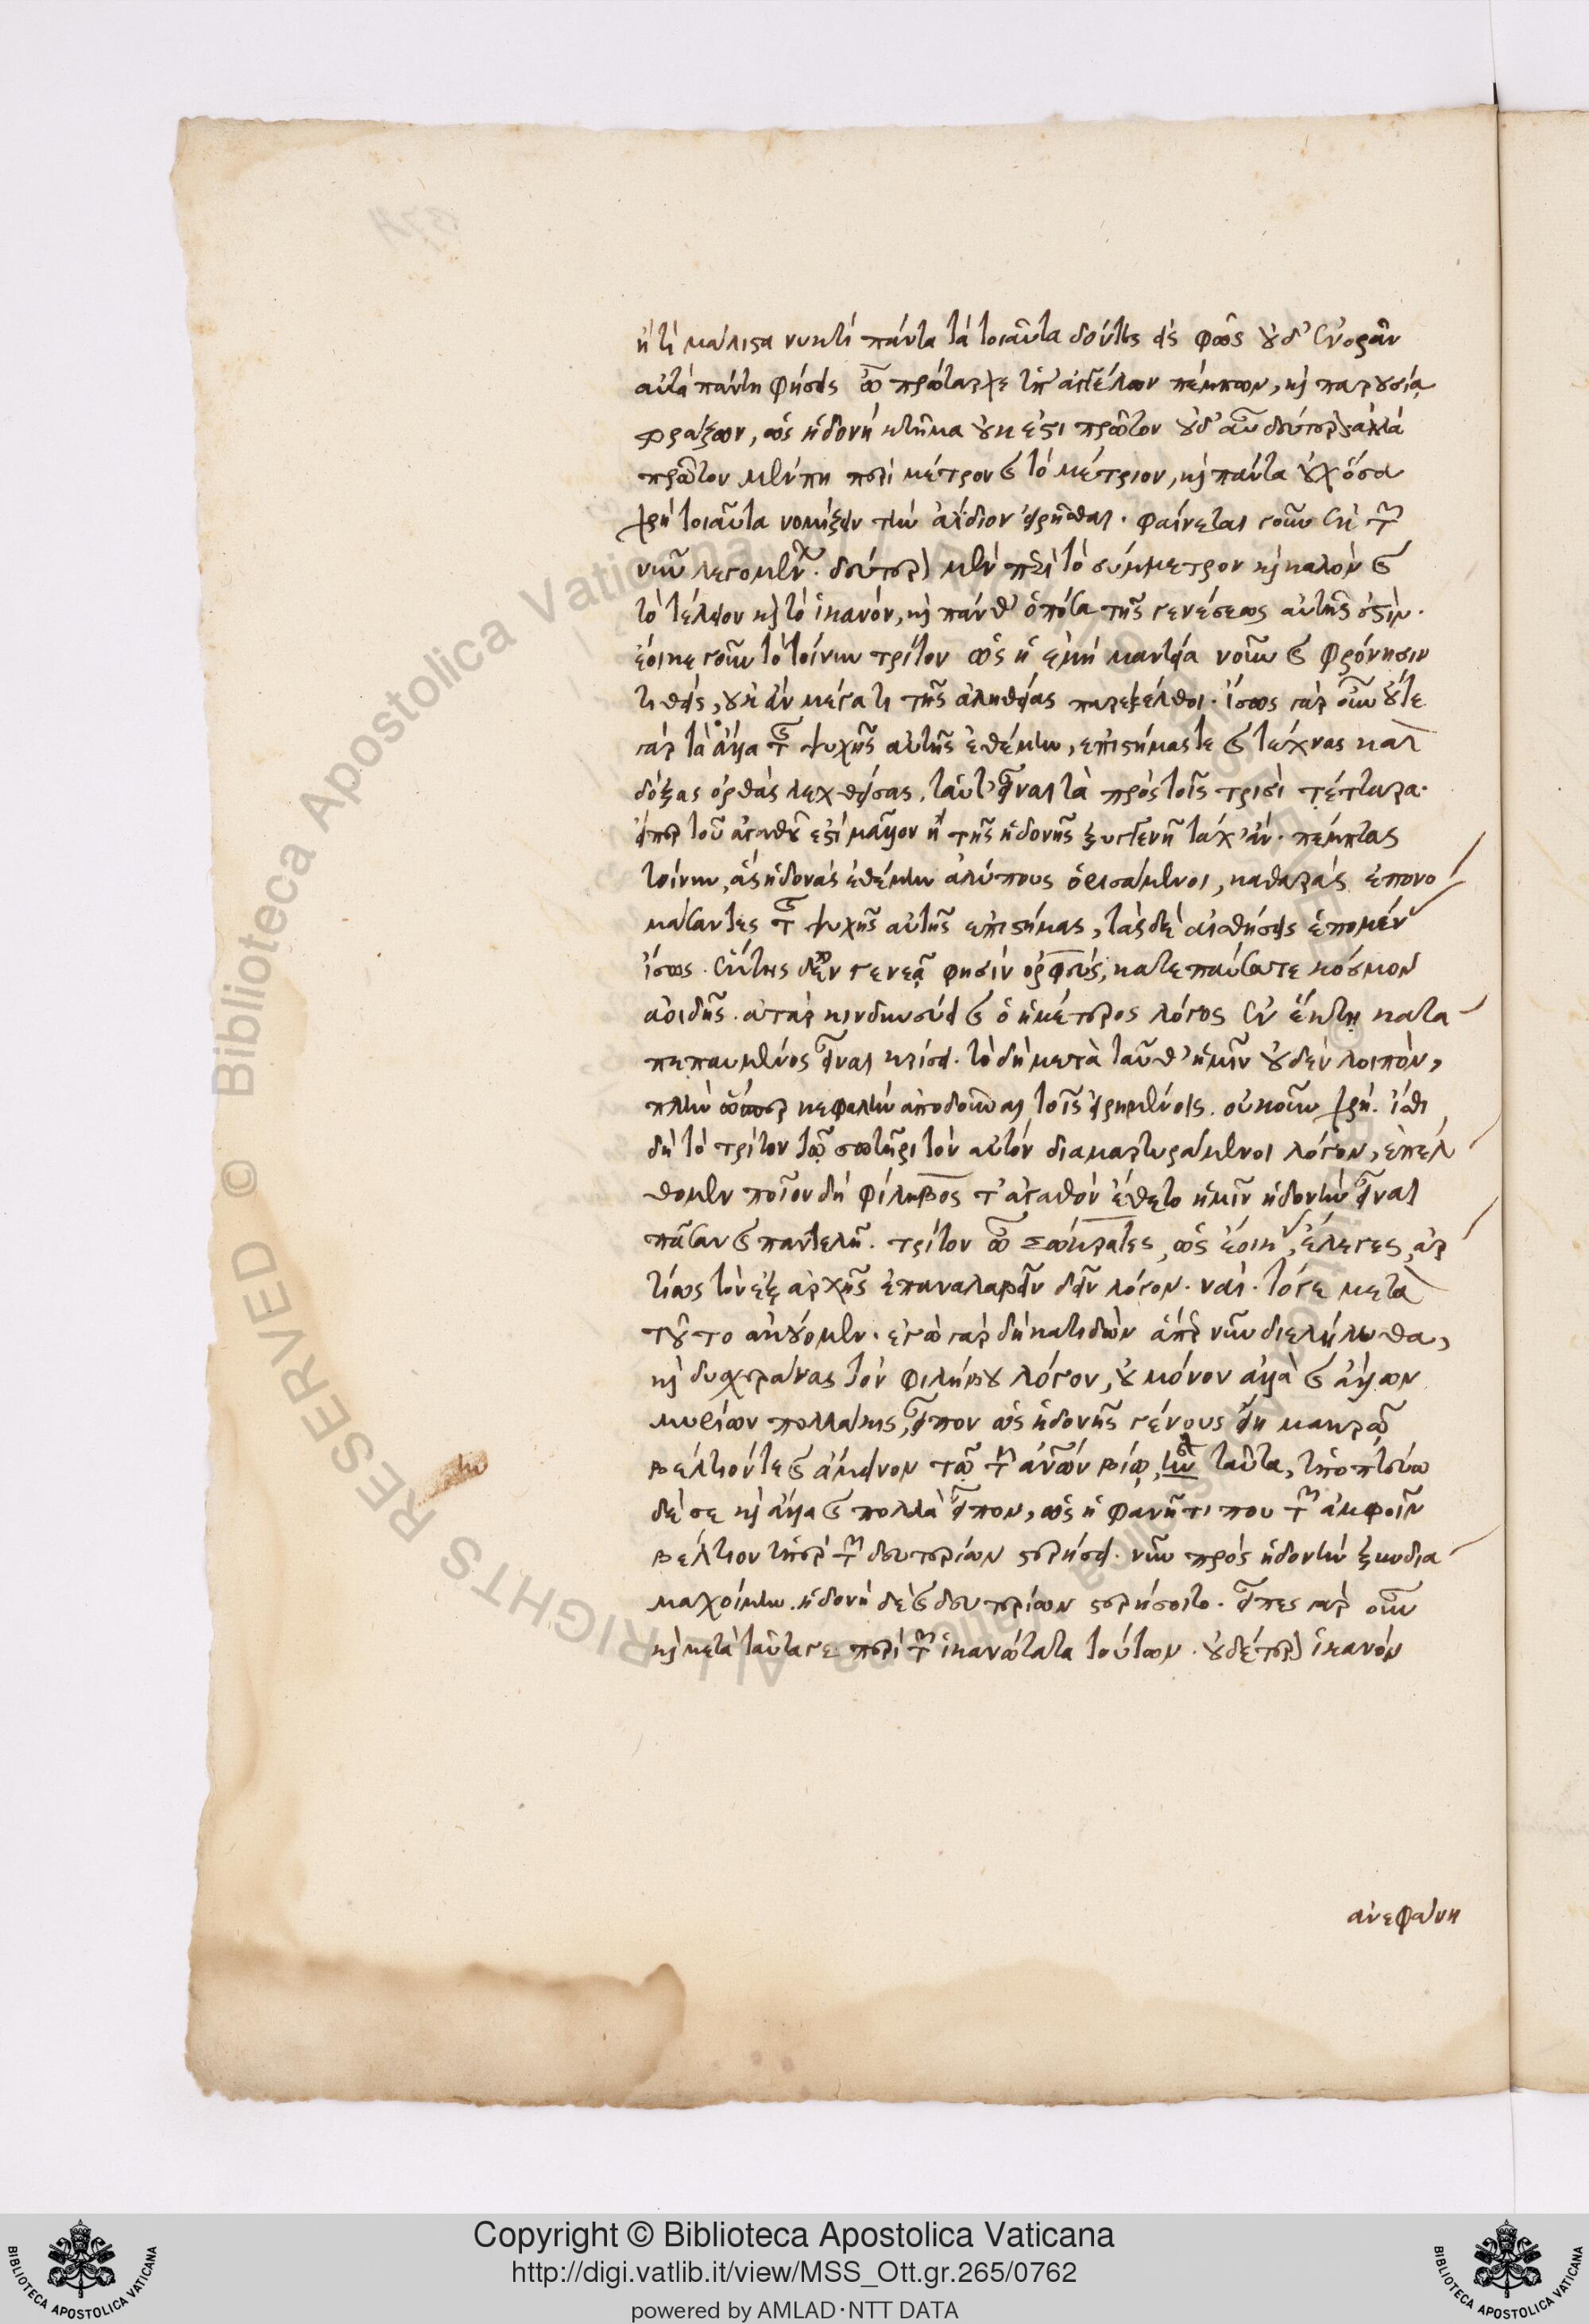 ὅτι μάλιστα νυκτὶ πάντα τὰ τοιαῦτα δόντες εἰς φῶς οὐδ' ἐνορᾶν
αὐτά πάντη φήσεις ὦ πρώταρχε ὑπ' ἀγγέλων πέμπων, καὶ παροῦσι
φράζων, ὡς ἡδονή κτῆμα οὐκ ἔστι πρῶτον οὐδ' αὖ δεύτερον, ἀλλὰ
πρῶτον μέν πη περὶ μέτρον καὶ τὸ μέτριον, καὶ πάντα οὐχ ὅσα
χρὴ τοιαῦτα νομίζειν τὴν ἀίδιον εἰρῆσθαι. φαίνεται γοῦν ἐκ τῶν
νῦν λεγομένων. δεύτερον μὴν περὶ τὸ σύμμετρον καὶ καλὸν καὶ
τὸ τέλεον καὶ τὸ ἱκανόν, καὶ πάνθ' ὁπόσα τῆς γενέσεως αὐτῆς ἐστίν.
ἔοικε γοῦν τὸ τοίνυν τρίτον ὡς ἡ ἐμὴ μαντεία νοῦν καὶ φρόνησιν
τιθείς, οὐκ ἂν μέγα τι τῆς ἀληθείας παρεξέλθοι. ἴσως γὰρ οὖν οὔτε
γὰρ τὰ ἄλλα τῆς ψυχῆς αὐτῆς ἐθέμην, ἐπιστήμας τε καὶ τέχνας καὶ
δόξας ὀρθὰς λεχθείσας, ταῦτ' εἶναι τὰ πρὸς τοῖς τρισὶ τέτταρα.
εἴπερ τοῦ ἀγαθοῦ ἐστι μᾶλλον ἢ τῆς ἡδονῆς ξυγγενῆ τάχ' ἄν. πέμπτας
τοίνυν, ἃς ἡδονὰς ἐθέμην ἀλύπους ὁρισάμενοι, καθαρὰς ἐπονο
μάσαντες τῆς ψυχῆς αὐτῆς ἐπιστήμας, τὰς δὲ αἰσθήσεις ἑπομένας
ἴσως. ἕκτης δ' ἐν γενεᾷ φησὶν ὀρφεύς, καταπαύσατε κόσμον
ἀοιδῆς. ἀτὰρ κινδυνεύει καὶ ὁ ἡμέτερος λόγος ἐν ἕκτῃ κατα
πεπαυμένος εἶναι κρίσει. τὸ δὴ μετὰ ταῦθ' ἡμῖν οὐδὲν λοιπόν,
πλὴν ὥσπερ κεφαλὴν ἀποδοῦναι τοῖς εἰρημένοις. οὐκοῦν χρή. ἴθι
δὴ τὸ τρίτον τῷ σωτῆρι τὸν αὐτὸν διαμαρτυράμενοι λόγον, ἐπέλ
θωμεν ποῖον δή φίληβος τ' ἀγαθὸν ἐθετο ἡμῖν ἡδονὴν εἶναι
πᾶσαν καὶ παντελῆ. τρίτον ὦ σώκρατες, ὡς ἔοικας, ἔλεγες, ἀρ
τίως τὸν ἐξ ἀρχῆς ἐπαναλαβεῖν δεῖν λόγον. ναί. τό γε μετὰ
τοῦτο ἀκούωμεν. ἐγὼ γὰρ δὴ κατιδὼν ἅπερ νῦν διελήλυθα,
καὶ δυσχεράνας τὸν φιλήβου λόγον, οὐ μόνον ἀλλὰ καὶ ἄλλων
μυρίων πολλάκις, εἶπον ὡς ἡδονῆς γένους εἴη μακρῷ
βέλτιόν τε καὶ ἄμεινον τῷ τῶν ἀνθρώπων βίῳ, ἦν ταῦτα, ὑποπτεύω
δέ σε καὶ ἄλλα καὶ πολλὰ εἶπον, ὡς εἰ φανῆ τι που τῶν ἀμφοῖν
βέλτιον ὑπὲρ τῶν δευτερείων στερήσει. νῦν πρὸς ἡδονὴν ξυνδια
μαχοίμην. ἡδονὴ δὲ καὶ δευτερείων στερήσοιτο. εἶπες γὰρ οὖν
καὶ μετὰ ταῦτά γε περὶ τῶν ἱκανώτατα τούτων. οὐδέτερον ἱκανόν
ἀνεφάνη
Copyright © Biblioteca Apostolica Vaticana
http://digi.vatlib.it/view/MSS_Ott.gr.265/0762
powered by AMLAD·NTT DATA